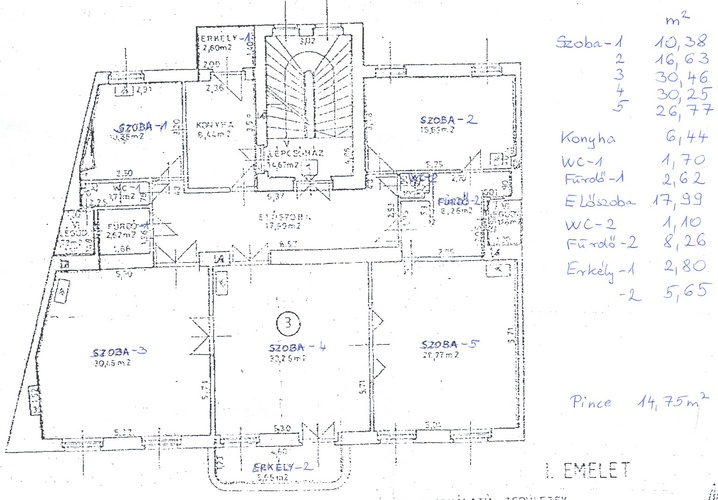 ERKÉLY-1
2,80m2
3,02
2,00
2,36
2,91
KONYHA
6,44m2
SZOBA-1
10,38m2
SZOBA-2
LÉPCSŐHÁZ
14,67m2
2,90
5,37
5,25
WC-1
WC-2
FÜRDŐ-1
2,62m2
1,66
ELŐSZOBA
17,99m2
8,57
FÜRDŐ-2
8,26m2
SZOBA-3
30,46m2
3
SZOBA-4
30,25m2
SZOBA-5
26,77m2
5,71
5,71
5,71
5,30
4,60
ERKÉLY-2
5,65m2
m²
Szoba-1 10,38
2 16,63
3 30,46
4 30,25
5 26,77
Konyha 6,44
WC-1 1,70
Fürdő-1 2,62
Előszoba 17,99
WC-2 1,10
Fürdő-2 8,26
Erkély-1 2,80
-2 5,65
Pince 14,75m²
I. EMELET